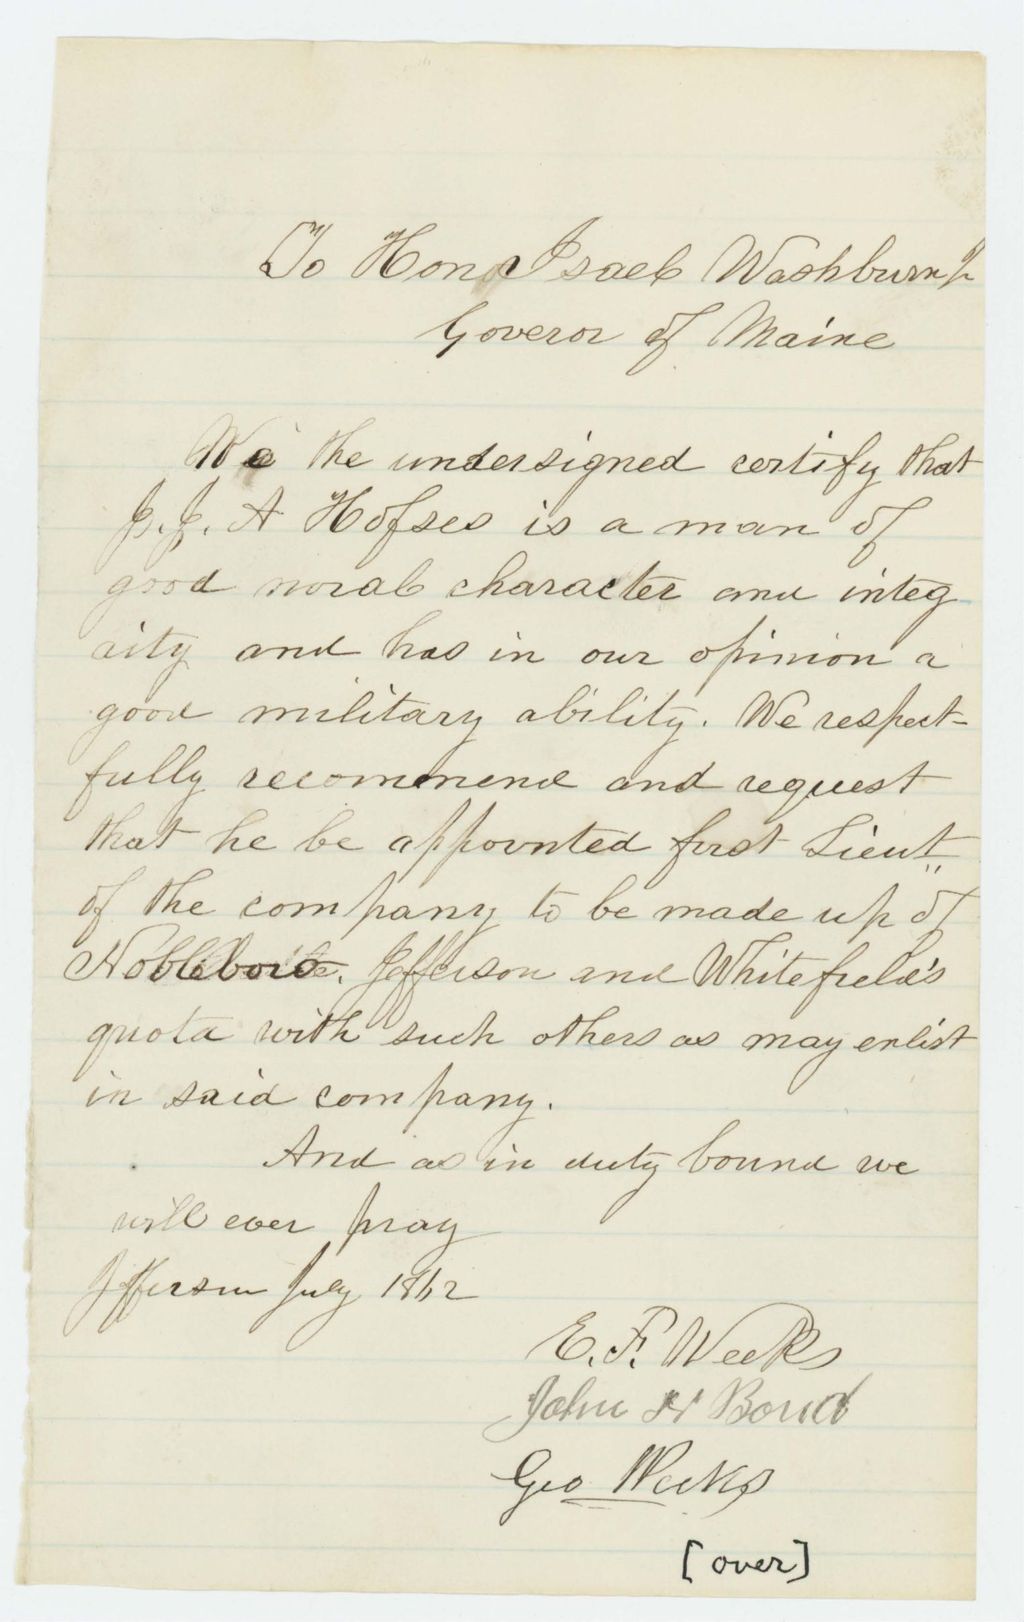 To Hon Isael Washburn Jr
Goveror of Maine
We the undersigned certify that
J. J. A Hofses is a man of
good moral character and integ
rity and has in our opinion a
good military ability. We respect-
fully recommend and request
that he be appointed first Lieut
of the company to be made up of
Nobleboro. Jefferson and Whitefield's
quota with such others as may enlist
in said company.
And as in duty bound we
will ever pray
Jefferson July 1862
E. F. Weeks
John H Bond
Geo Weeks
[over]